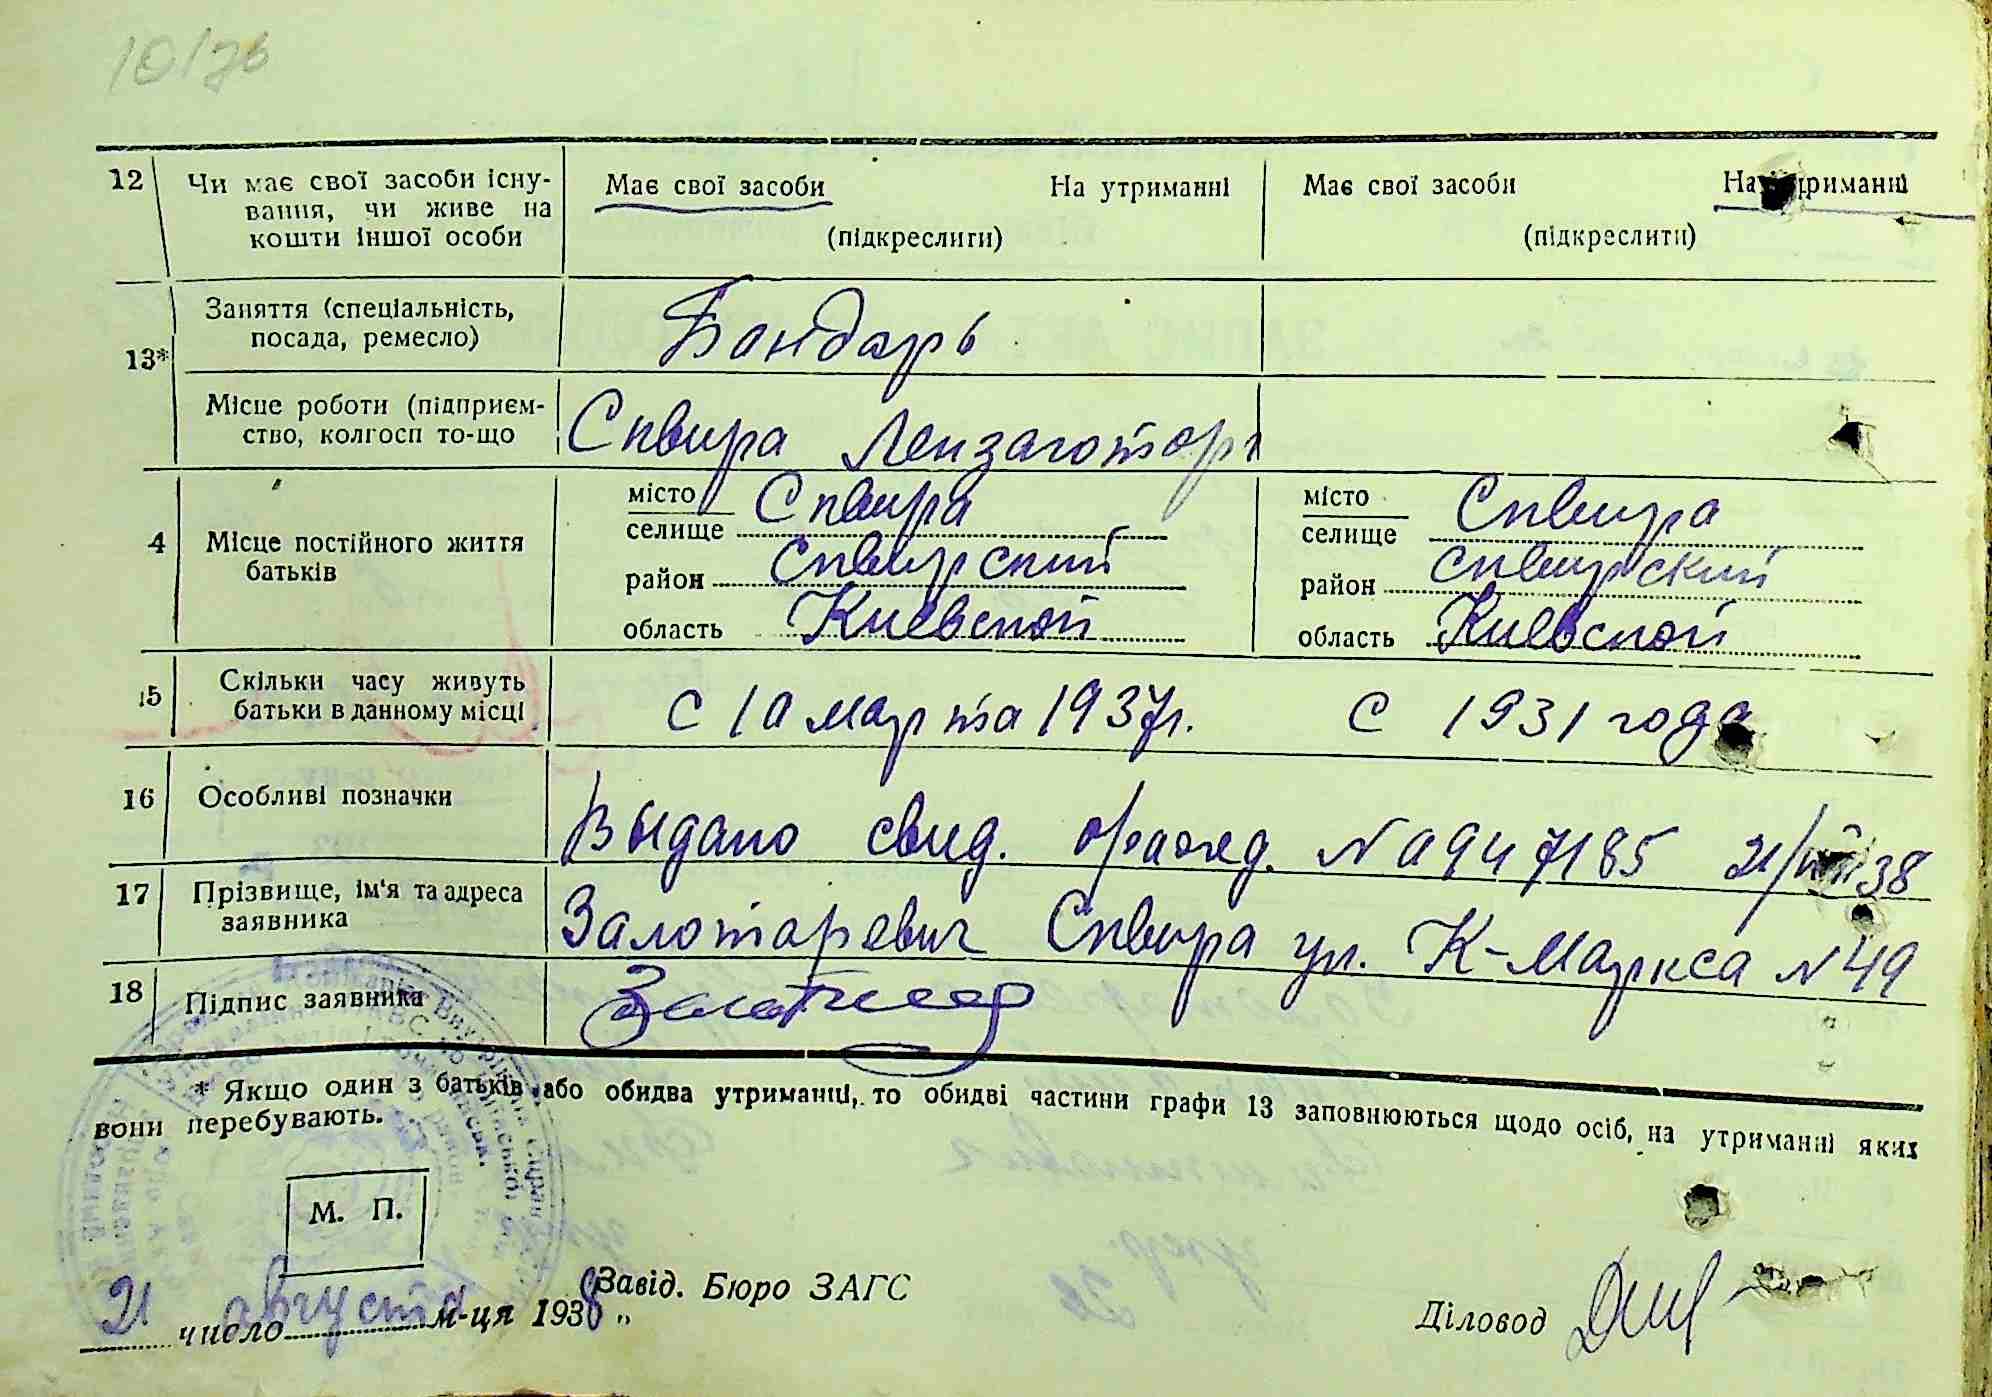 12 Чи має свої засоби існу-
вання, чи живе на
кошти іншої особи
Має свої засоби На утриманні
(підкреслити)
Має свої засоби На утриманні
(підкреслити)
13* Заняття (спеціальність,
посада, ремесло)
Бондарь
Місце роботи (підприєм-
ство, колгосп то-що
Сквира
4 Місце постійного життя
батьків
місто Сквира
селище
район Сквирский
область Киевской
місто Сквира
селище
район Сквирский
область Киевской
15 Скільки часу живуть
батьки в данному місці
с 10 марта 1937г. с 1931 года
16 Особливі позначки
Выдано свид. о рожд. № 0947185 21/VIII 38
17 Прізвище, ім'я та адреса
заявника
Залотаревич Сквира ул. К-Маркса № 49
18 Підпис заявника
* Якщо один з батьків або обидва утриманні, то обидві частини графи 13 заповнюються щодо осіб, на утриманні яких
вони перебувають.
М. П.
21 число августа м-ця 1938 „
Завід. Бюро ЗАГС
Діловод